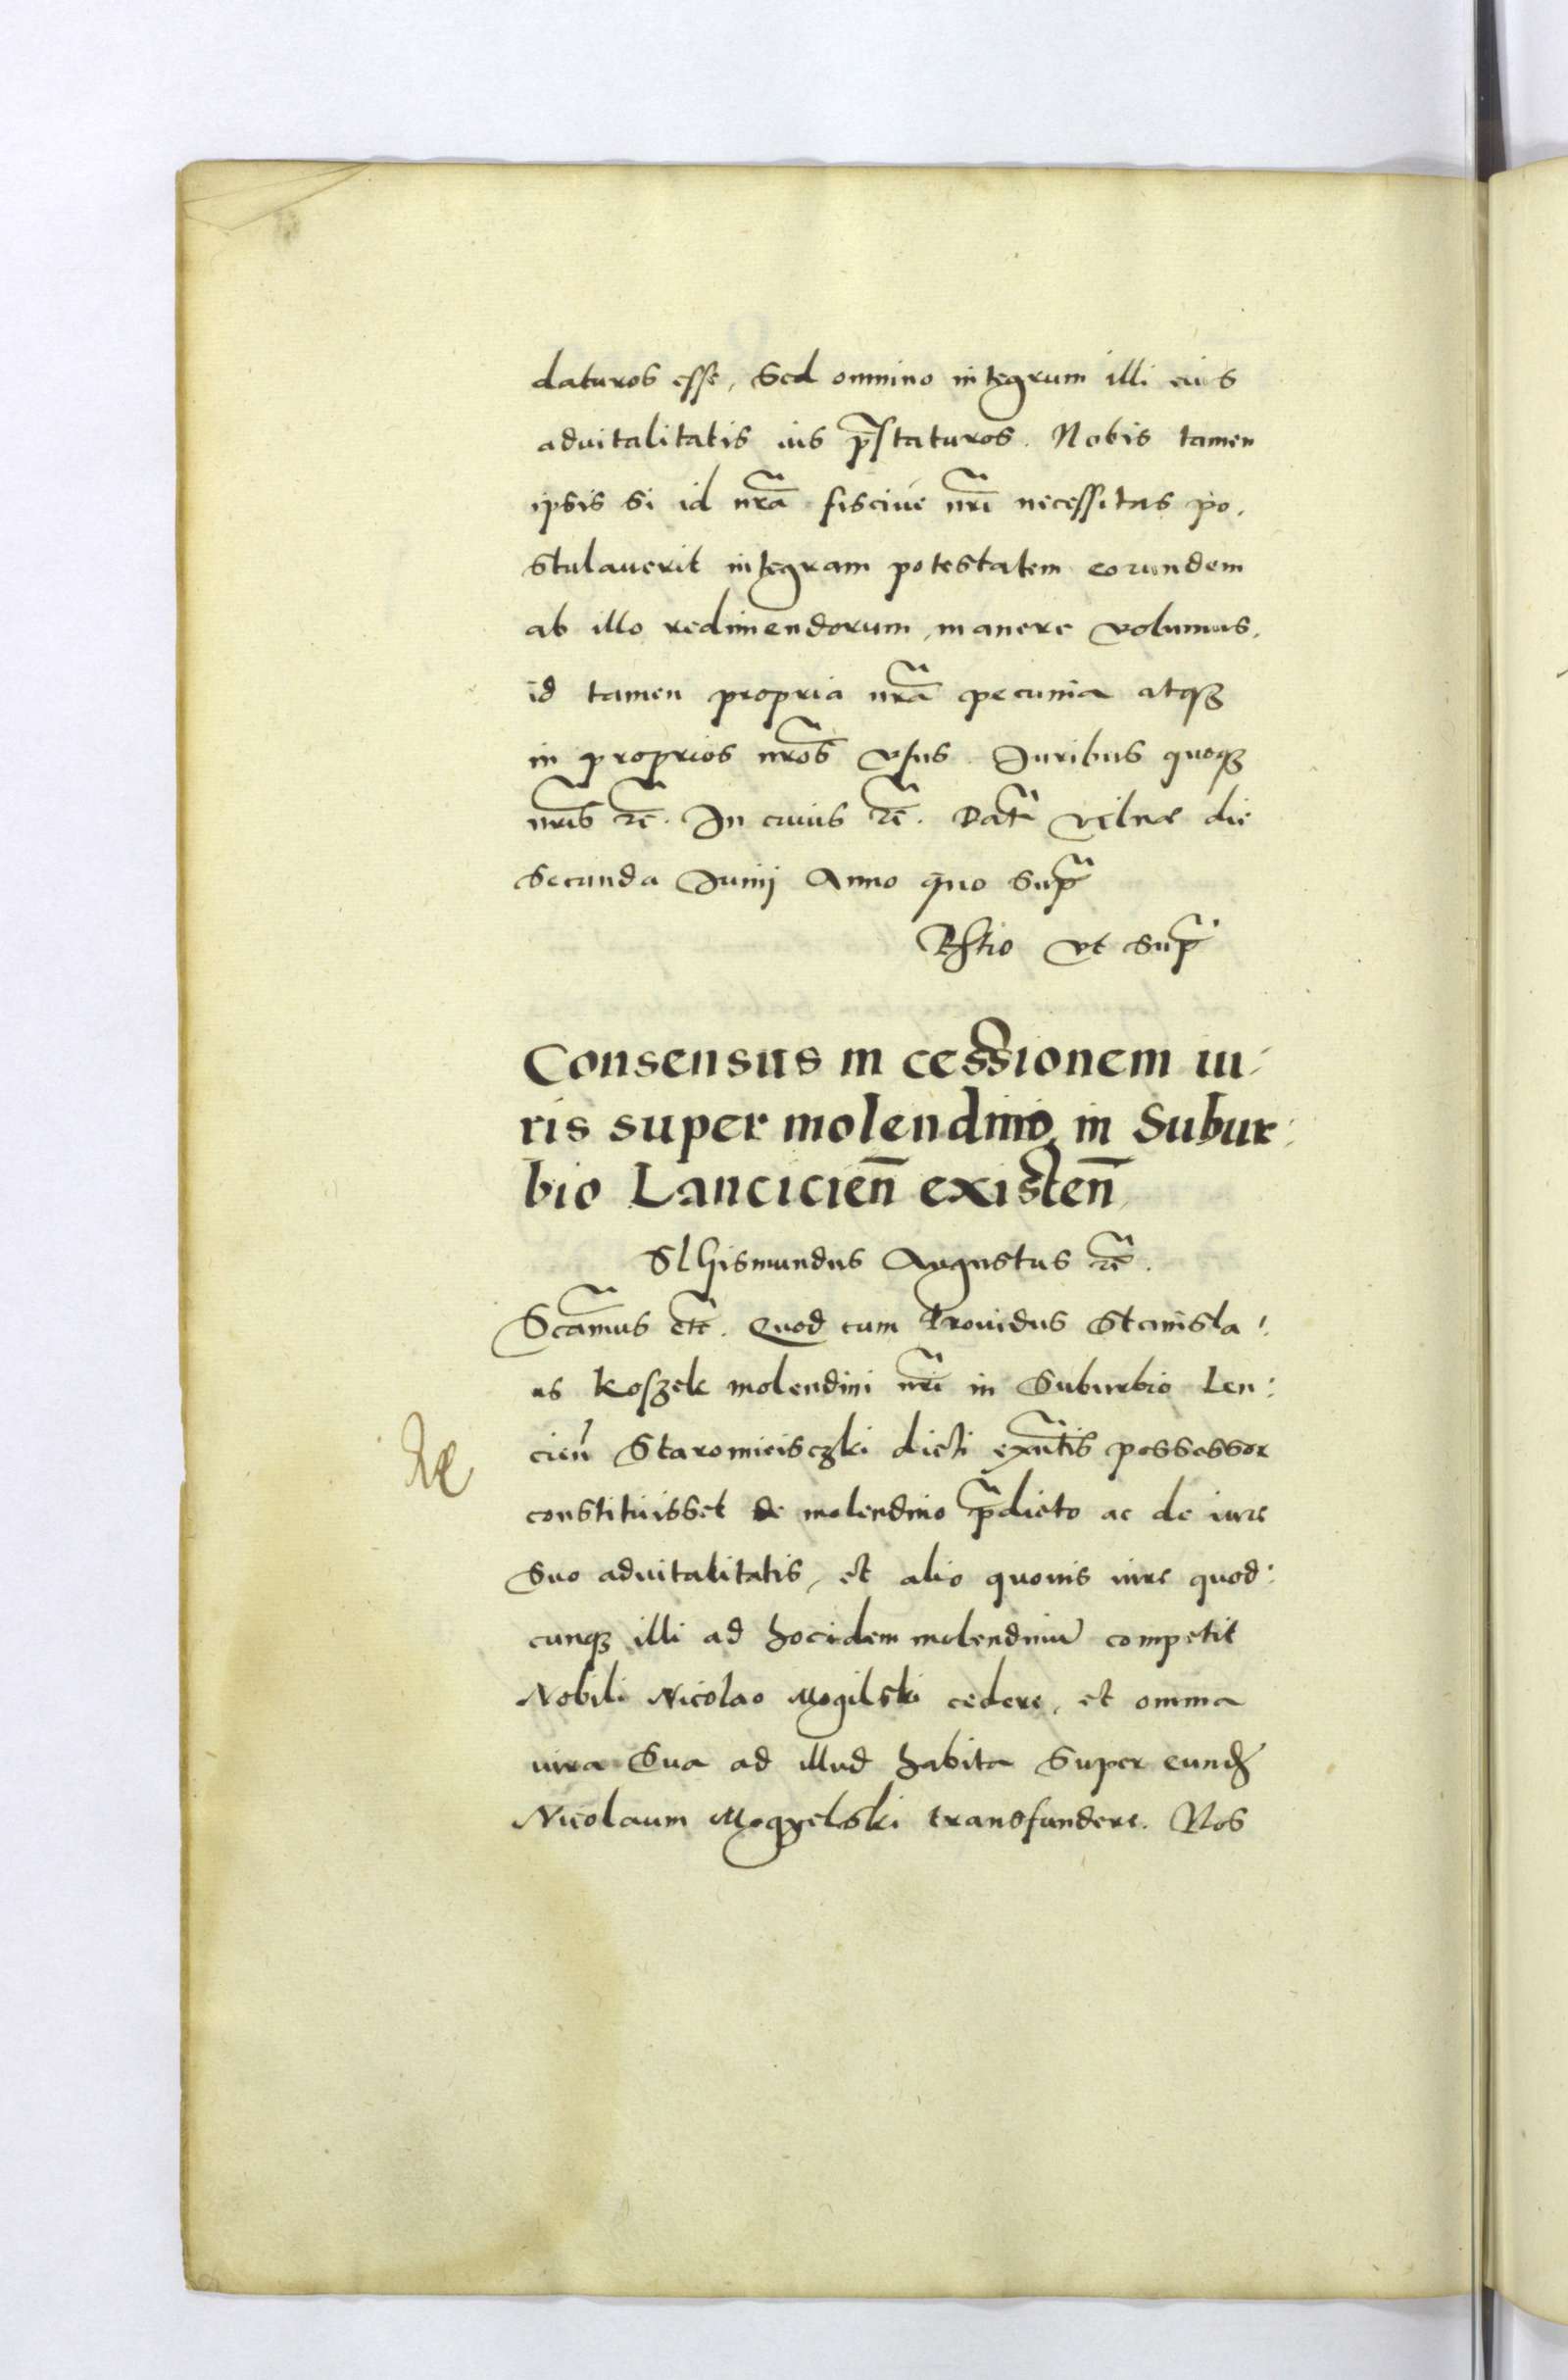 daturos esse, Sed omnino integrum illi eius
aduitalitatis ius p̃staturos. Nobis tamen
ipsis si id nr̃a fisciue nr̃i necessitas po,
stulauerit integram potestatem eorundem
ab illo redimendorum manere volumus,
id tamen propria nr̃a pecunia atqꝫ
in proprios nr̃os vsus. Juribus quoqꝫ
nr̃is ⁊c̃. In cuius ⁊c̃. Dat̃ vilnae die
Secunda Junij Anno quo sup̃
Rl̃tio vt sup̃
Consensus in cessionem iu-
ris super molendino in Subur-
bio Lancicien̄ existen̄
SIhismundus Augustus ⁊c̃.
Sc̃amus etc̃. Quod cum Prouidus Stanisla-
us Koszek molendini nr̃i in Suburbio Len-
cien̄ Staromieisczki dicti exñtis possessor
constituisset de molendino p̃dicto ac de iure
Suo aduitalitatis, et alio quouis iure quod-
cunqꝫ illi ad hocidem molendinū competit
Nobili Nicolao Mogilski cedere, et omnia
iura Sua ad illud habita Super eundꝫ
Nicolaum Mogyelski transfundere. Nos